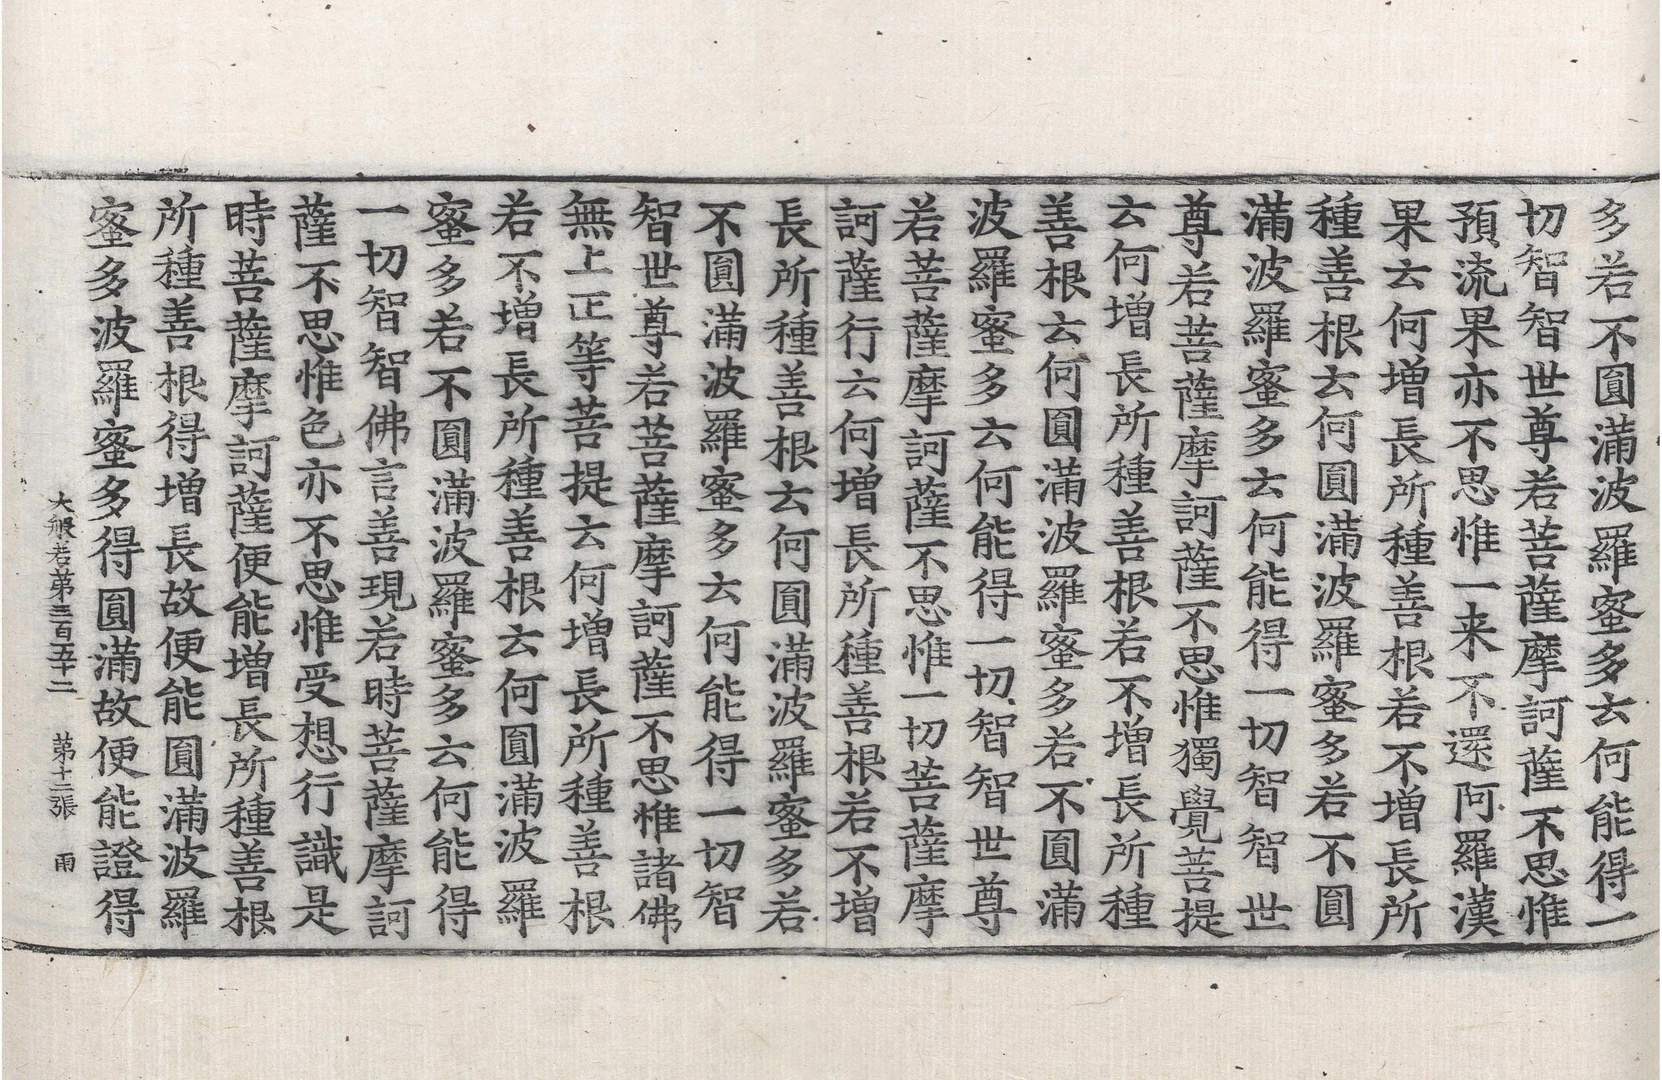 多若不圓滿波羅蜜多云何能得一
切智智世尊若菩薩摩訶薩不思惟
預流果亦不思惟一来不還阿羅漢
果云何增長所種善根若不增長所
種善根云何圓滿波羅蜜多若不圓
滿波羅蜜多云何能得一切智智世
尊若菩薩摩訶薩不思惟獨覺菩提
云何增長所種善根若不增長所種
善根云何圓滿波羅蜜多若不圓滿
波羅蜜多云何能得一切智智世尊
若菩薩摩訶薩不思惟一切菩薩摩
訶薩行云何增長所種善根若不增
長所種善根云何圓滿波羅蜜多若
不圓滿波羅蜜多云何能得一切智
智世尊若菩薩摩訶薩不思惟諸佛
無上正等菩提云何增長所種善根
若不增長所種善根云何圓滿波羅
蜜多若不圓滿波羅蜜多云何能得
一切智智佛言善現若時菩薩摩訶
薩不思惟色亦不思惟受想行識是
時菩薩摩訶薩便能增長所種善根
所種善根得增長故便能圓滿波羅
蜜多波羅蜜多得圓滿故便能證得
大般若第三百五十二 第十二張 雨